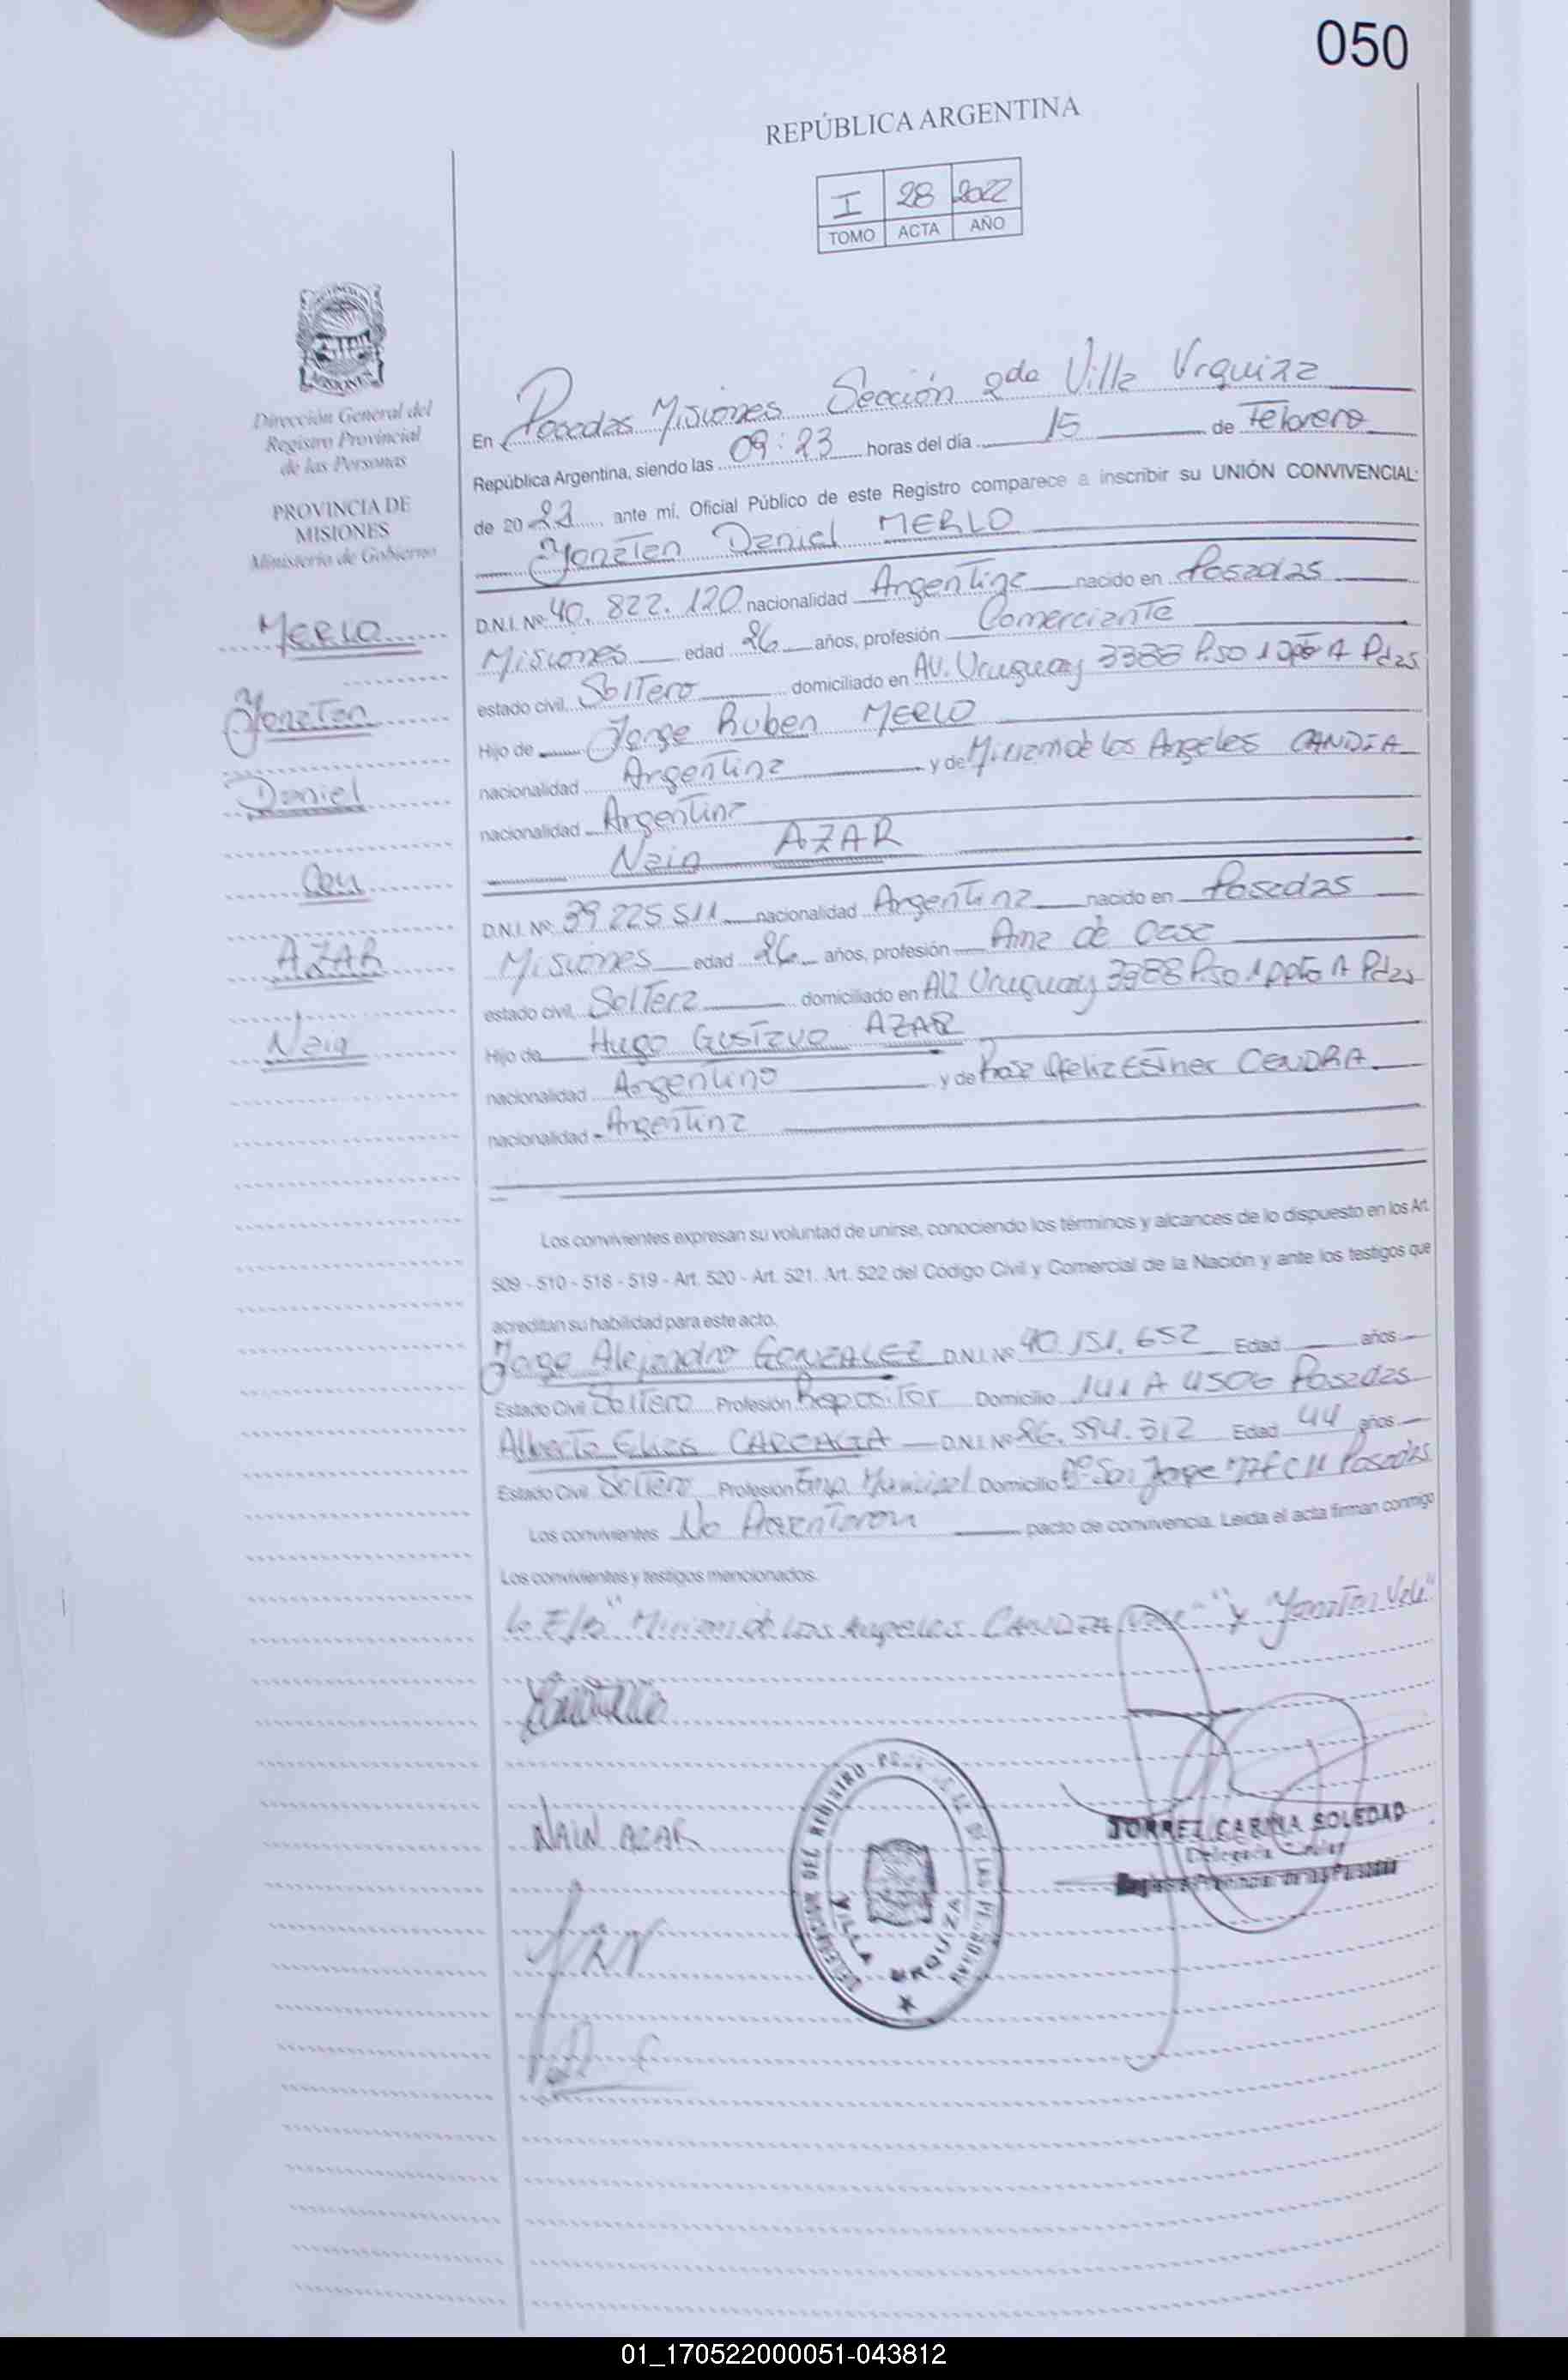 050
REPÚBLICA ARGENTINA
I 28 2022
TOMO ACTA AÑO
MISIONES
Dirección General del
Registro Provincial
de las Personas
PROVINCIA DE
MISIONES
Ministerio de Gobierno
MERLO
Yonatan
Daniel
Con
AZAR
Nain
En Posadas Misiones Sección 2da Villa Urquiza
República Argentina, siendo las 09:23 horas del día 15 de Febrero
de 2022 ante mí, Oficial Público de este Registro comparece a inscribir su UNIÓN CONVIVENCIAL:
Yonatan Daniel MERLO
D.N.I. Nº 40.822.120 nacionalidad Argentina nacido en Posadas
Misiones edad 26 años, profesión Comerciante
estado civil Soltero domiciliado en AV. Uruguay 3388 Piso 1 Dpto A Pdas
Hijo de Jorge Ruben MERLO
nacionalidad Argentina y de Miriam de los Angeles CANDIA
nacionalidad Argentina
Nain AZAR
D.N.I. Nº 39.225.511 nacionalidad Argentina nacido en Posadas
Misiones edad 26 años, profesión Ama de Casa
estado civil Soltera domiciliado en AV. Uruguay 3388 Piso 1 Dpto A Pdas
Hijo de Hugo Gustavo AZAR
nacionalidad Argentino y de Esther CENDRA
nacionalidad Argentina
Los convivientes expresan su voluntad de unirse, conociendo los términos y alcances de lo dispuesto en los Art.
509 - 510 - 518 - 519 - Art. 520 - Art. 521. Art. 522 del Código Civil y Comercial de la Nación y ante los testigos que
acreditan su habilidad para este acto.
Jorge Alejandro GONZALEZ D.N.I. Nº 40.151.652 Edad años
Estado Civil Soltero Profesión Repositor Domicilio 141 A 4506 Posadas
Alberto Elias CAREAGA D.N.I. Nº 26.594.312 Edad 44 años
Estado Civil Soltero Profesión Emp. Municipal Domicilio Bº San Jorge Posadas
Los convivientes No Presentaron pacto de convivencia. Leida el acta firman conmigo
Los convivientes y testigos mencionados.
"Miriam de los Angeles CANDIA Vale" y Yonatan Vale"
NAIN AZAR
DELEGACION DEL REGISTRO PROVINCIAL DE LAS PERSONAS
VILLA URQUIZA
TORREZ CARINA SOLEDAD
Delegada Titular
Registro Provincial de las Personas
01_170522000051-043812